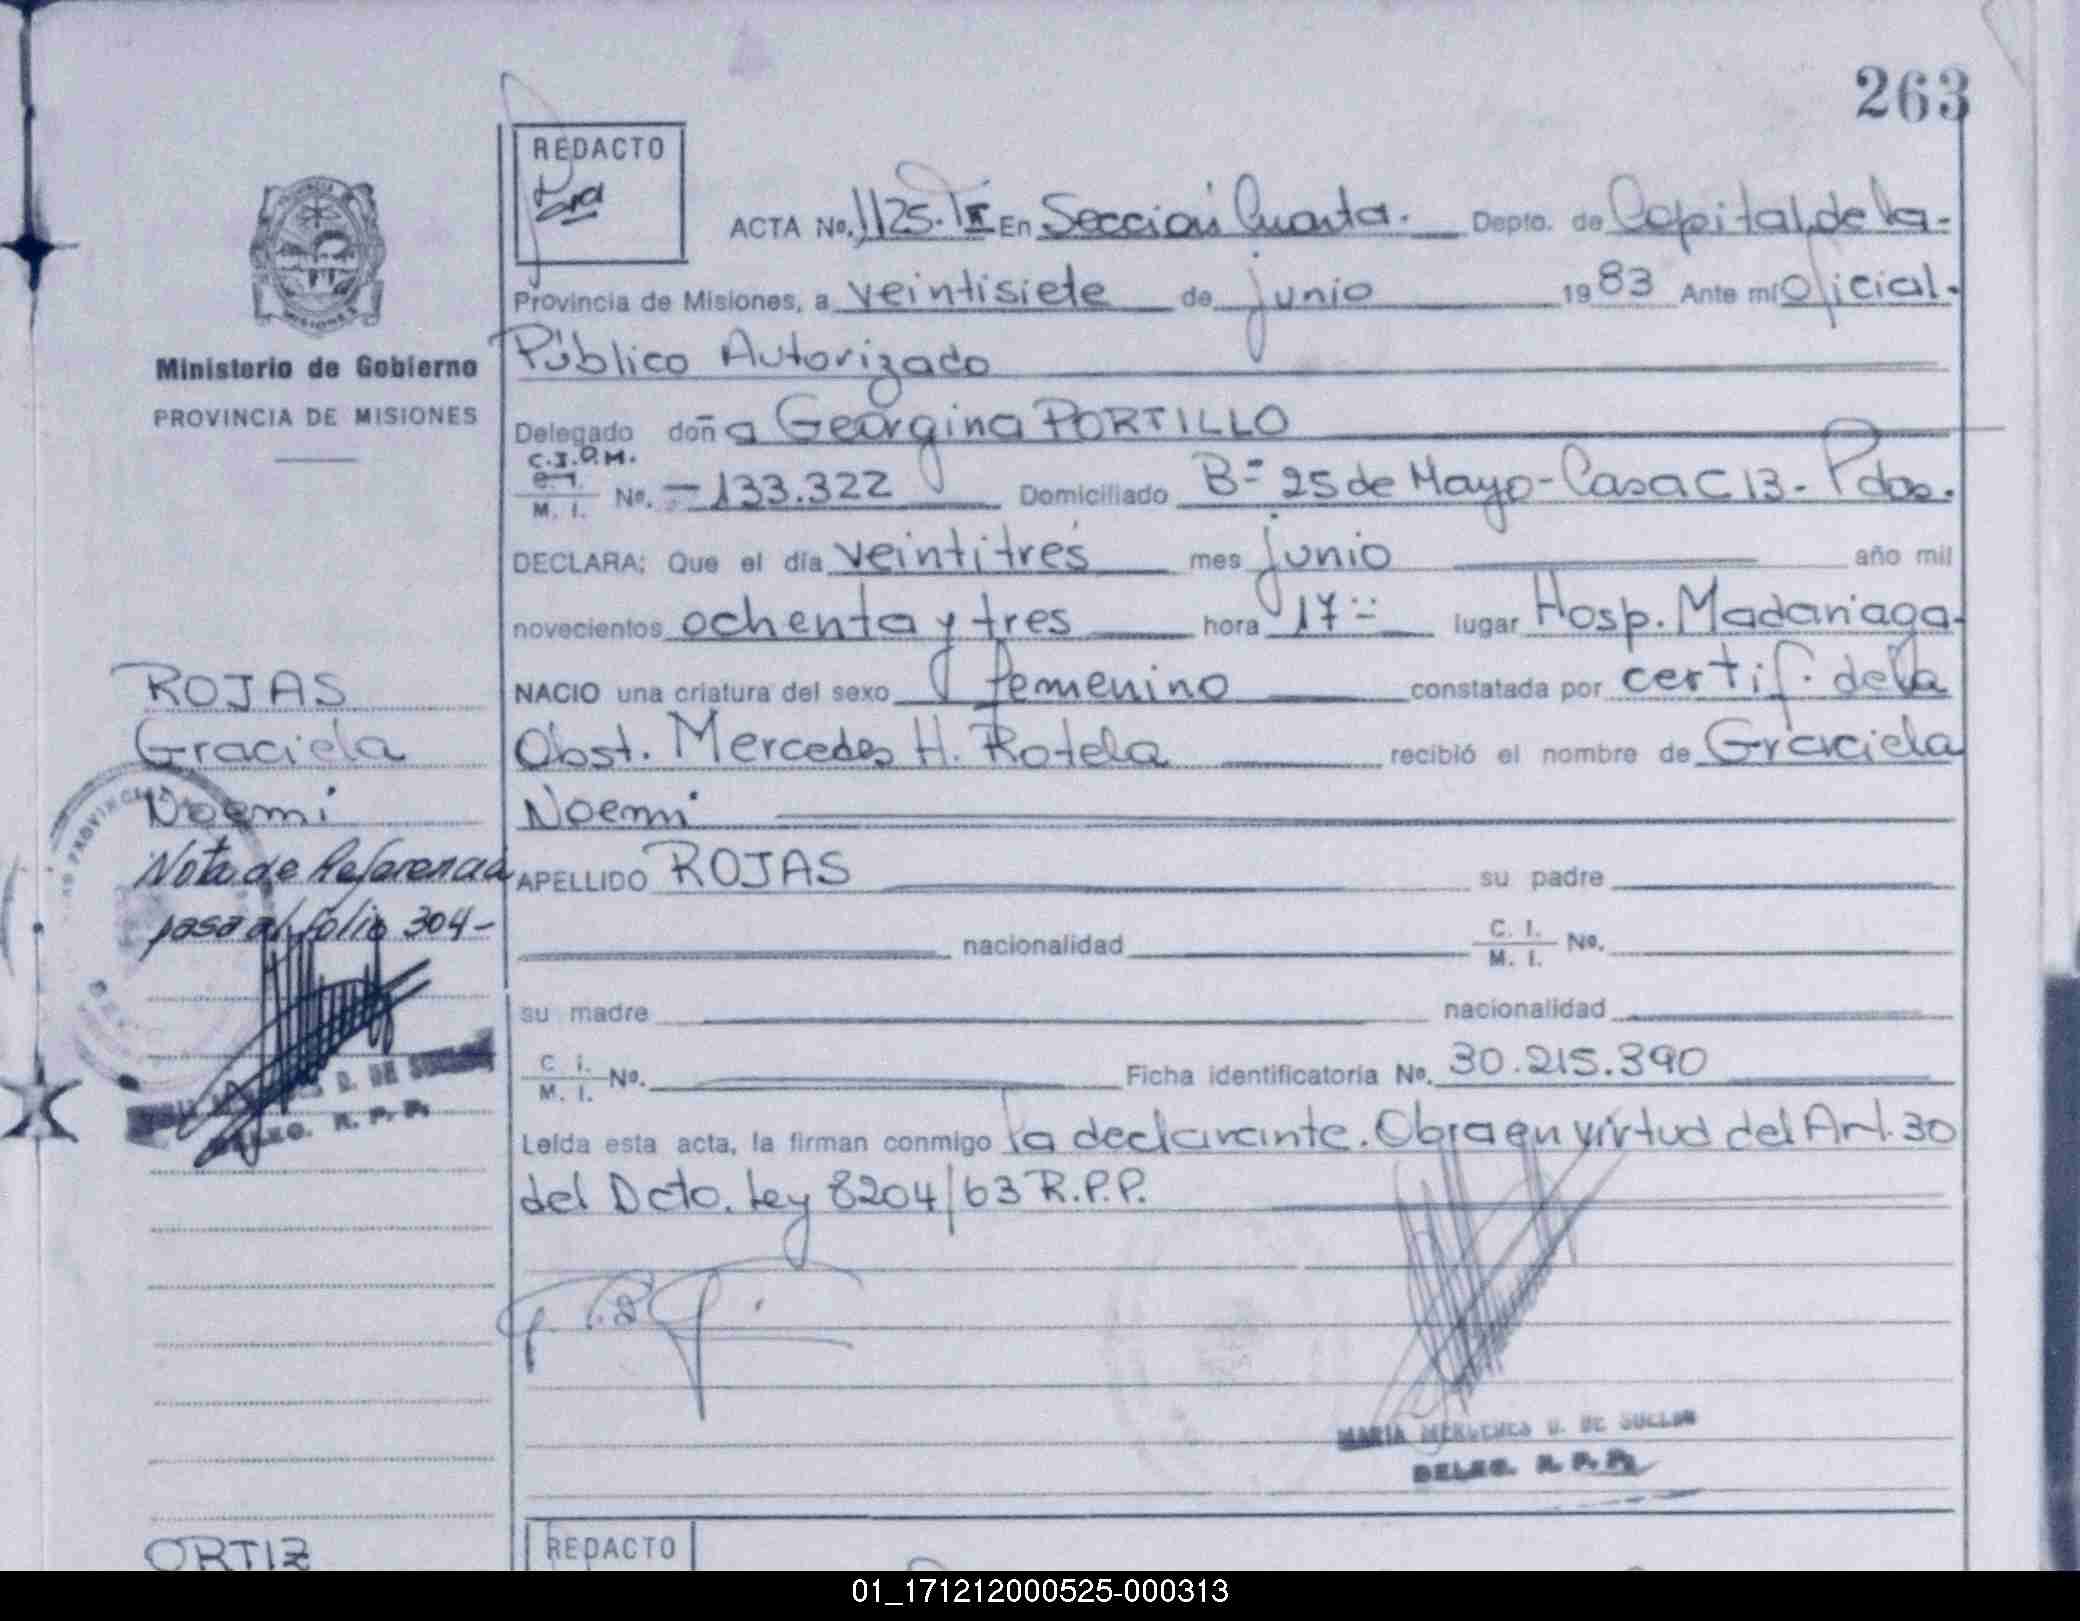 263
REDACTO
ACTA No. 1125. En Sección Cuarta. Depto. de Capital, de la
Provincia de Misiones, a veintisiete de junio 1983 Ante mí Oficial
Público Autorizado
Ministerio de Gobierno
PROVINCIA DE MISIONES
Delegado doña Georgina PORTILLO
C.I.P.M.
M. I. No. 133.322 Domiciliado Bº 25 de Mayo - Casa C 13 - Pdas.
DECLARA: Que el día veintitrés mes junio año mil
novecientos ochenta y tres hora 17 lugar Hosp. Madariaga
NACIO una criatura del sexo femenino constatada por certif. de la
Obst. Mercedes H. Rotela recibió el nombre de Graciela
Noemi
APELLIDO ROJAS su padre
nacionalidad C. I. M. I. No.
su madre nacionalidad
C. I. M. I. No. Ficha identificatoria No. 30.215.390
Leída esta acta, la firman conmigo la declarante. Obra en virtud del Art. 30
del Dcto. Ley 8204/63 R.P.P.
ROJAS
Graciela
Noemi
Nota de Referencia
pasa al folio 304-
D. DE
DELEG. R. P. P.
MARIA MERCEDES D. DE
DELEG. R. P. P.
ORTIZ
REDACTO
01_171212000525-000313